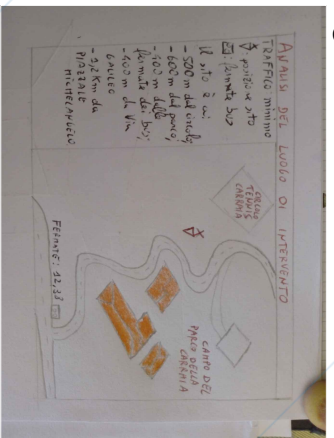 ANALISI DEL LUOGO DI INTERVENTO
TRAFFICO: minimo
: posizione sito
: fermate bus
Il sito è a:
- 500m dal circolo;
- 600m dal parco;
- 400m dalle
fermate dei bus;
- 400m da Via
GALILEO
- 1,2 Km da
PIAZZALE
MICHELANGELO
CIRCOLO
TENNIS
CARRAIA
CAMPO DEL
PARCO DELLA
CARRAIA
FERMATE: 12, 13